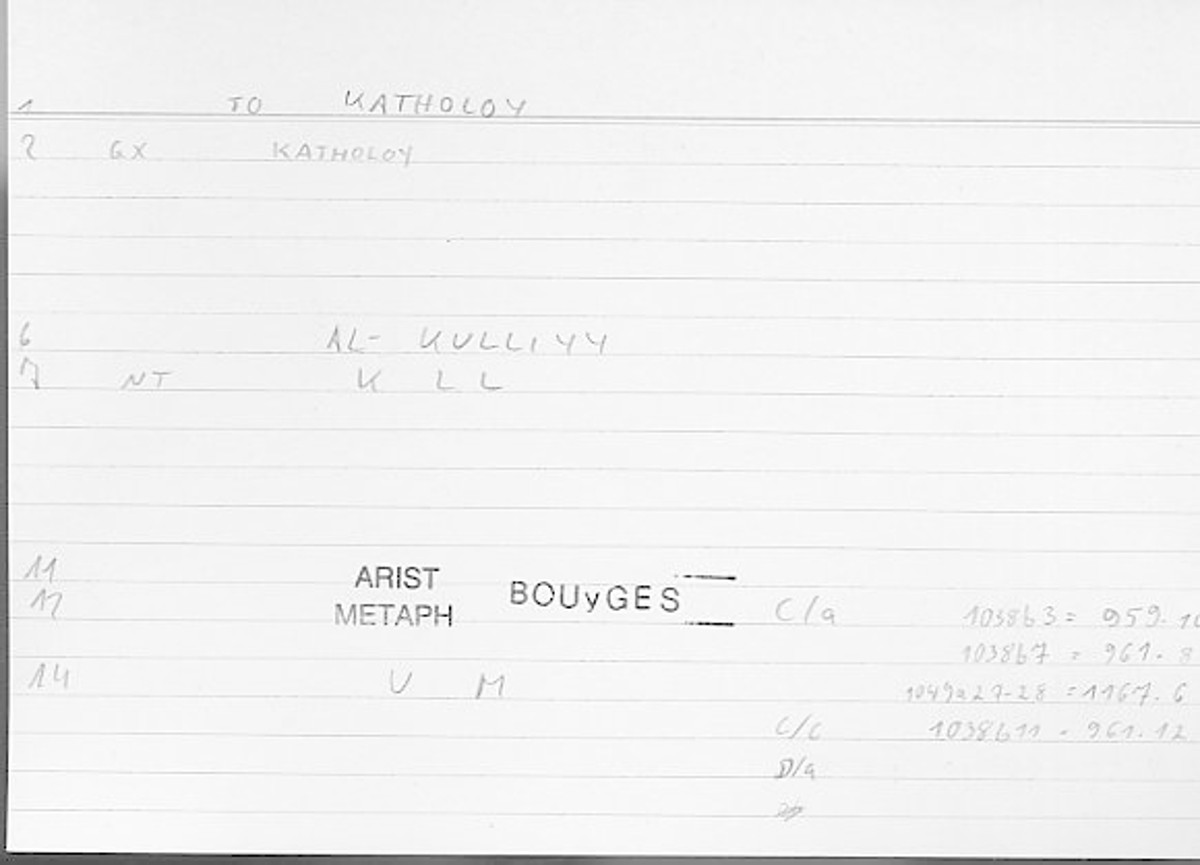 1 TO KATHOLOY
2 GX KATHOLOY
6 AL- KULLIYY
7 NT K LL
11 ARIST BOUyGES
12 METAPH C/a 1038b3 = 959.10
1038b7 = 961.8
14 U M 1049a27-28 = 1167.6
C/c 1038b11 = 961.12
D/a